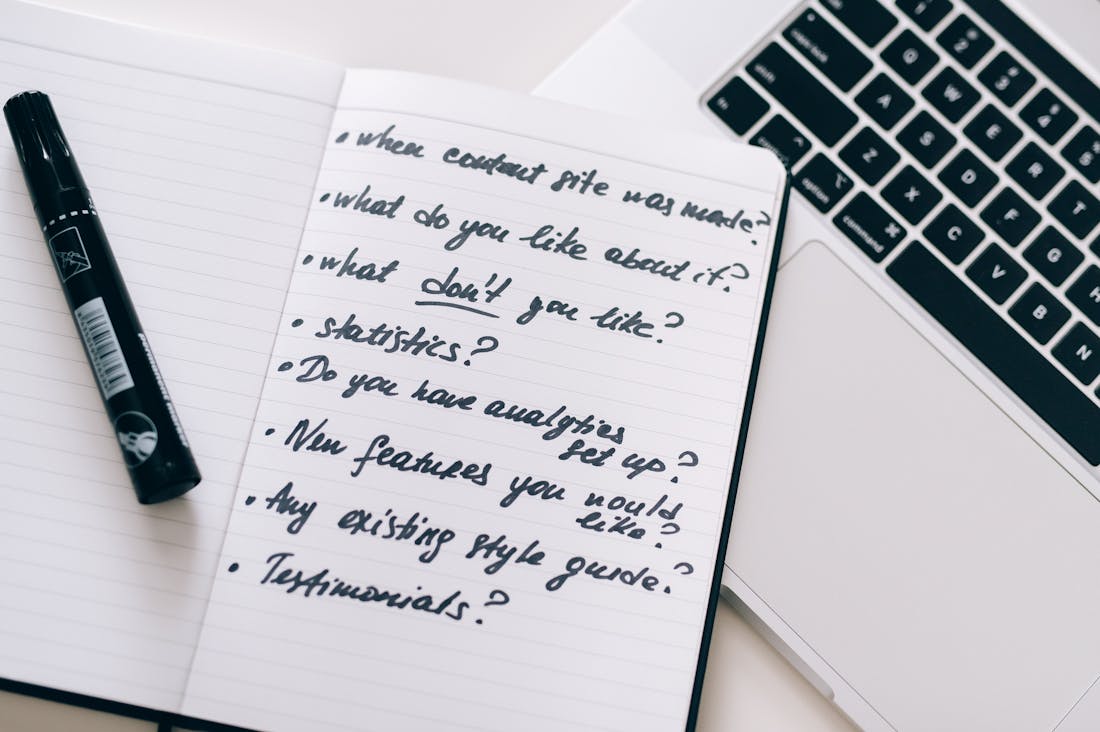 • when content site was made?
• what do you like about it?
• what don't you like?
• statistics?
• Do you have analytics
set up?
• New features you would
like?
• Any existing style guide?
• Testimonials?
1 2 3 4
Q W E R T
caps lock A S D F G H
shift Z X C V B N
fn option command